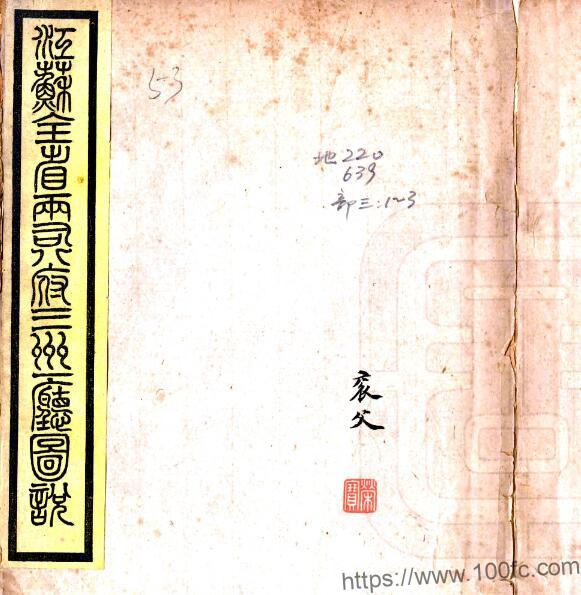 江蘇全省兩司八府三州一廳圖說
53
地220
639
部三:1~3
袞父
榮寶
https://www.100fc.com